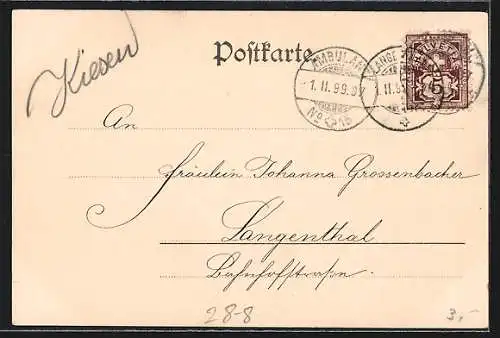 Kiesen
Postkarte
AMBULANT
1. II. 99.
No
LANGE
HELVETIA
5
An
Fräulein Johanna Grossenbacher
Langenthal
Bahnhofstraße.
28-8
3,-